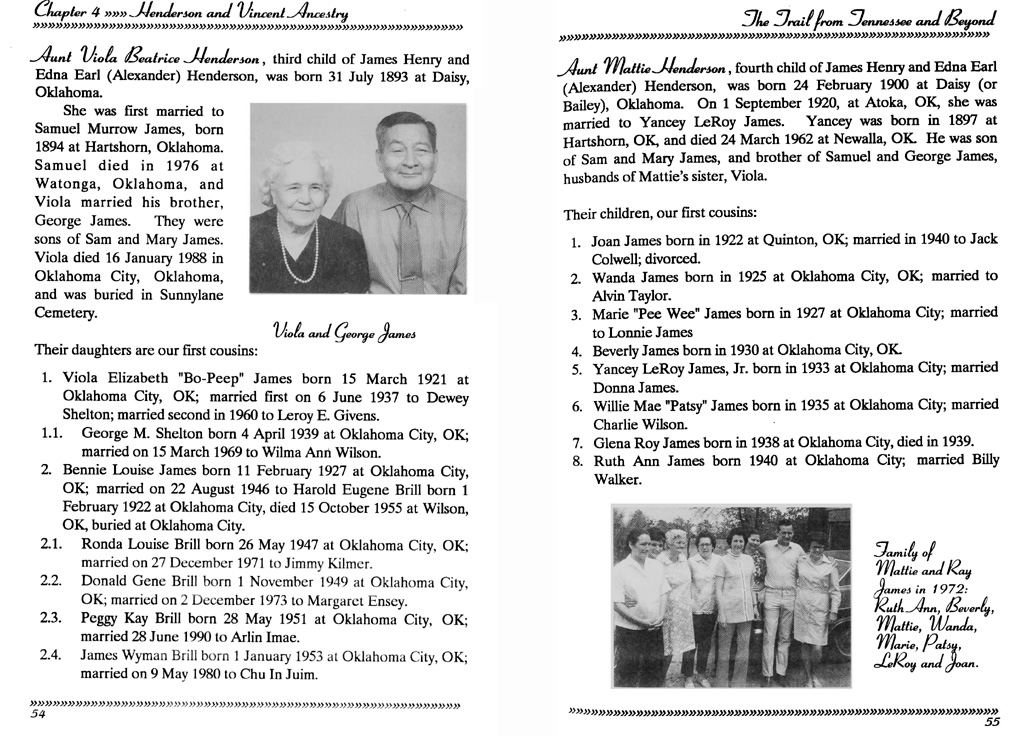 Chapter 4 »»» Henderson and Vincent Ancestry
Aunt Viola Beatrice Henderson, third child of James Henry and
Edna Earl (Alexander) Henderson, was born 31 July 1893 at Daisy,
Oklahoma.
She was first married to
Samuel Murrow James, born
1894 at Hartshorn, Oklahoma.
Samuel died in 1976 at
Watonga, Oklahoma, and
Viola married his brother,
George James. They were
sons of Sam and Mary James.
Viola died 16 January 1988 in
Oklahoma City, Oklahoma,
and was buried in Sunnylane
Cemetery.
Viola and George James
Their daughters are our first cousins:
1. Viola Elizabeth "Bo-Peep" James born 15 March 1921 at
Oklahoma City, OK; married first on 6 June 1937 to Dewey
Shelton; married second in 1960 to Leroy E. Givens.
1.1. George M. Shelton born 4 April 1939 at Oklahoma City, OK;
married on 15 March 1969 to Wilma Ann Wilson.
2. Bennie Louise James born 11 February 1927 at Oklahoma City,
OK; married on 22 August 1946 to Harold Eugene Brill born 1
February 1922 at Oklahoma City, died 15 October 1955 at Wilson,
OK, buried at Oklahoma City.
2.1. Ronda Louise Brill born 26 May 1947 at Oklahoma City, OK;
married on 27 December 1971 to Jimmy Kilmer.
2.2. Donald Gene Brill born 1 November 1949 at Oklahoma City,
OK; married on 2 December 1973 to Margaret Ensey.
2.3. Peggy Kay Brill born 28 May 1951 at Oklahoma City, OK;
married 28 June 1990 to Arlin Imae.
2.4. James Wyman Brill born 1 January 1953 at Oklahoma City, OK;
married on 9 May 1980 to Chu In Juim.
54
The Trail from Tennessee and Beyond
Aunt Mattie Henderson, fourth child of James Henry and Edna Earl
(Alexander) Henderson, was born 24 February 1900 at Daisy (or
Bailey), Oklahoma. On 1 September 1920, at Atoka, OK, she was
married to Yancey LeRoy James. Yancey was born in 1897 at
Hartshorn, OK, and died 24 March 1962 at Newalla, OK. He was son
of Sam and Mary James, and brother of Samuel and George James,
husbands of Mattie's sister, Viola.
Their children, our first cousins:
1. Joan James born in 1922 at Quinton, OK; married in 1940 to Jack
Colwell; divorced.
2. Wanda James born in 1925 at Oklahoma City, OK; married to
Alvin Taylor.
3. Marie "Pee Wee" James born in 1927 at Oklahoma City; married
to Lonnie James
4. Beverly James born in 1930 at Oklahoma City, OK.
5. Yancey LeRoy James, Jr. born in 1933 at Oklahoma City; married
Donna James.
6. Willie Mae "Patsy" James born in 1935 at Oklahoma City; married
Charlie Wilson.
7. Glena Roy James born in 1938 at Oklahoma City, died in 1939.
8. Ruth Ann James born 1940 at Oklahoma City; married Billy
Walker.
Family of
Mattie and Ray
James in 1972:
Ruth Ann, Beverly,
Mattie, Wanda,
Marie, Patsy,
LeRoy and Joan.
55